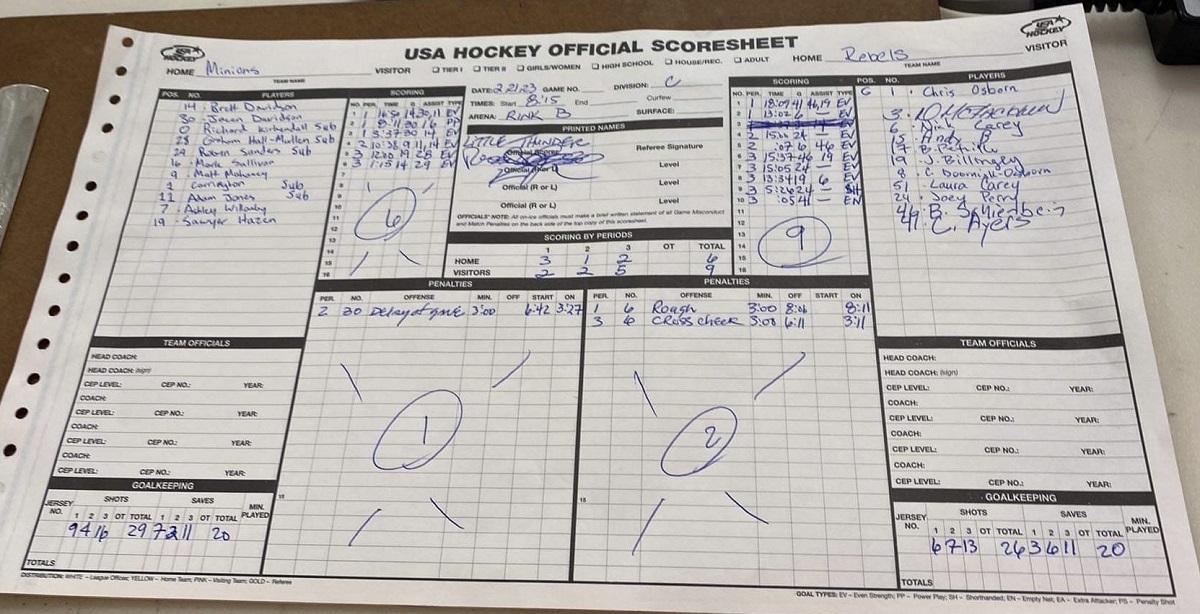 USA HOCKEY OFFICIAL SCORESHEET
USA HOCKEY
USA HOCKEY
HOME Minions VISITOR
TEAM NAME
☐ TIER I ☐ TIER II ☐ GIRLS/WOMEN ☐ HIGH SCHOOL ☐ HOUSE/REC. ☐ ADULT
HOME Rebels VISITOR
TEAM NAME
POS. NO. PLAYERS
14 Brett Davidson
30 Jason Davidson
0 Richard Kirkendall Sub
28 Graham Hall-Mullen Sub
29 Robin Sanders Sub
16 Mark Sullivan
9 Matt Mahoney
2 Carrington Sub
11 Adam Jones Sub
7 Ashley Willoughby
19 Sawyer Hazen
SCORING
NO. PER. TIME G ASSIST TYPE
1 1 16:50 14 30,11 EV
2 1 8:11 30 16 PP
3 1 3:37 30 14 EV
4 2 10:38 9 11,14 EV
5 3 12:00 19 28 EV
6 3 1:15 14 29 EV
7
8
9
10
11
12
13
14
15
16
6
DATE: 2/21/23 GAME NO. DIVISION: C
TIMES: Start 8:15 End Curfew
ARENA: RINK B SURFACE:
PRINTED NAMES
LITTLE THUNDER
Official Scorer Referee Signature
Official (R or L) Level
Official (R or L) Level
Official (R or L) Level
OFFICIALS' NOTE: All on-ice officials must make a brief written statement of all Game Misconduct
and Match Penalties on the back side of the top copy of this scoresheet.
SCORING BY PERIODS
1 2 3 OT TOTAL
HOME 3 1 2 6
VISITORS 2 2 5 9
SCORING
NO. PER. TIME G ASSIST TYPE
1 1 18:09 41 46,19 EV
2 1 13:02 6 — EV
3
4 2 15:00 24 — EV
5 2 :07 6 46 EV
6 3 15:37 46 19 EV
7 3 15:05 24 — EV
8 3 13:34 19 6 EV
9 3 5:26 24 — SH
10 3 :05 41 — EN
11
12
13
14
15
16
9
POS. NO. PLAYERS
G 1 Chris Osborn
3
6 Nick Carey
15
17
19 J. Billingly
8 C. Doornick-Osborn
51 Laura Carey
24 Joey Perry
46 B.
41 C. Ayers
PENALTIES
PER. NO. OFFENSE MIN. OFF START ON
2 30 Delay of game 3:00 6:42 3:27
1
PENALTIES
PER. NO. OFFENSE MIN. OFF START ON
1 6 Rough 3:00 8:06 8:11
3 6 Cross check 3:00 6:11 3:11
2
15
15
TEAM OFFICIALS
HEAD COACH:
HEAD COACH: (sign)
CEP LEVEL: CEP NO.: YEAR:
COACH:
CEP LEVEL: CEP NO.: YEAR:
COACH:
CEP LEVEL: CEP NO.: YEAR:
COACH:
CEP LEVEL: CEP NO.: YEAR:
GOALKEEPING
JERSEY NO. SHOTS SAVES MIN. PLAYED
1 2 3 OT TOTAL 1 2 3 OT TOTAL
9 4 16 29 7 2 11 20
TOTALS
TEAM OFFICIALS
HEAD COACH:
HEAD COACH: (sign)
CEP LEVEL: CEP NO.: YEAR:
COACH:
CEP LEVEL: CEP NO.: YEAR:
COACH:
CEP LEVEL: CEP NO.: YEAR:
COACH:
CEP LEVEL: CEP NO.: YEAR:
GOALKEEPING
JERSEY NO. SHOTS SAVES MIN. PLAYED
1 2 3 OT TOTAL 1 2 3 OT TOTAL
6 7 13 26 3 6 11 20
TOTALS
DISTRIBUTION: WHITE – League Officer; YELLOW – Home Team; PINK – Visiting Team; GOLD – Referee
GOAL TYPES: EV – Even Strength; PP – Power Play; SH – Shorthanded; EN – Empty Net; EA – Extra Attacker; PS – Penalty Shot